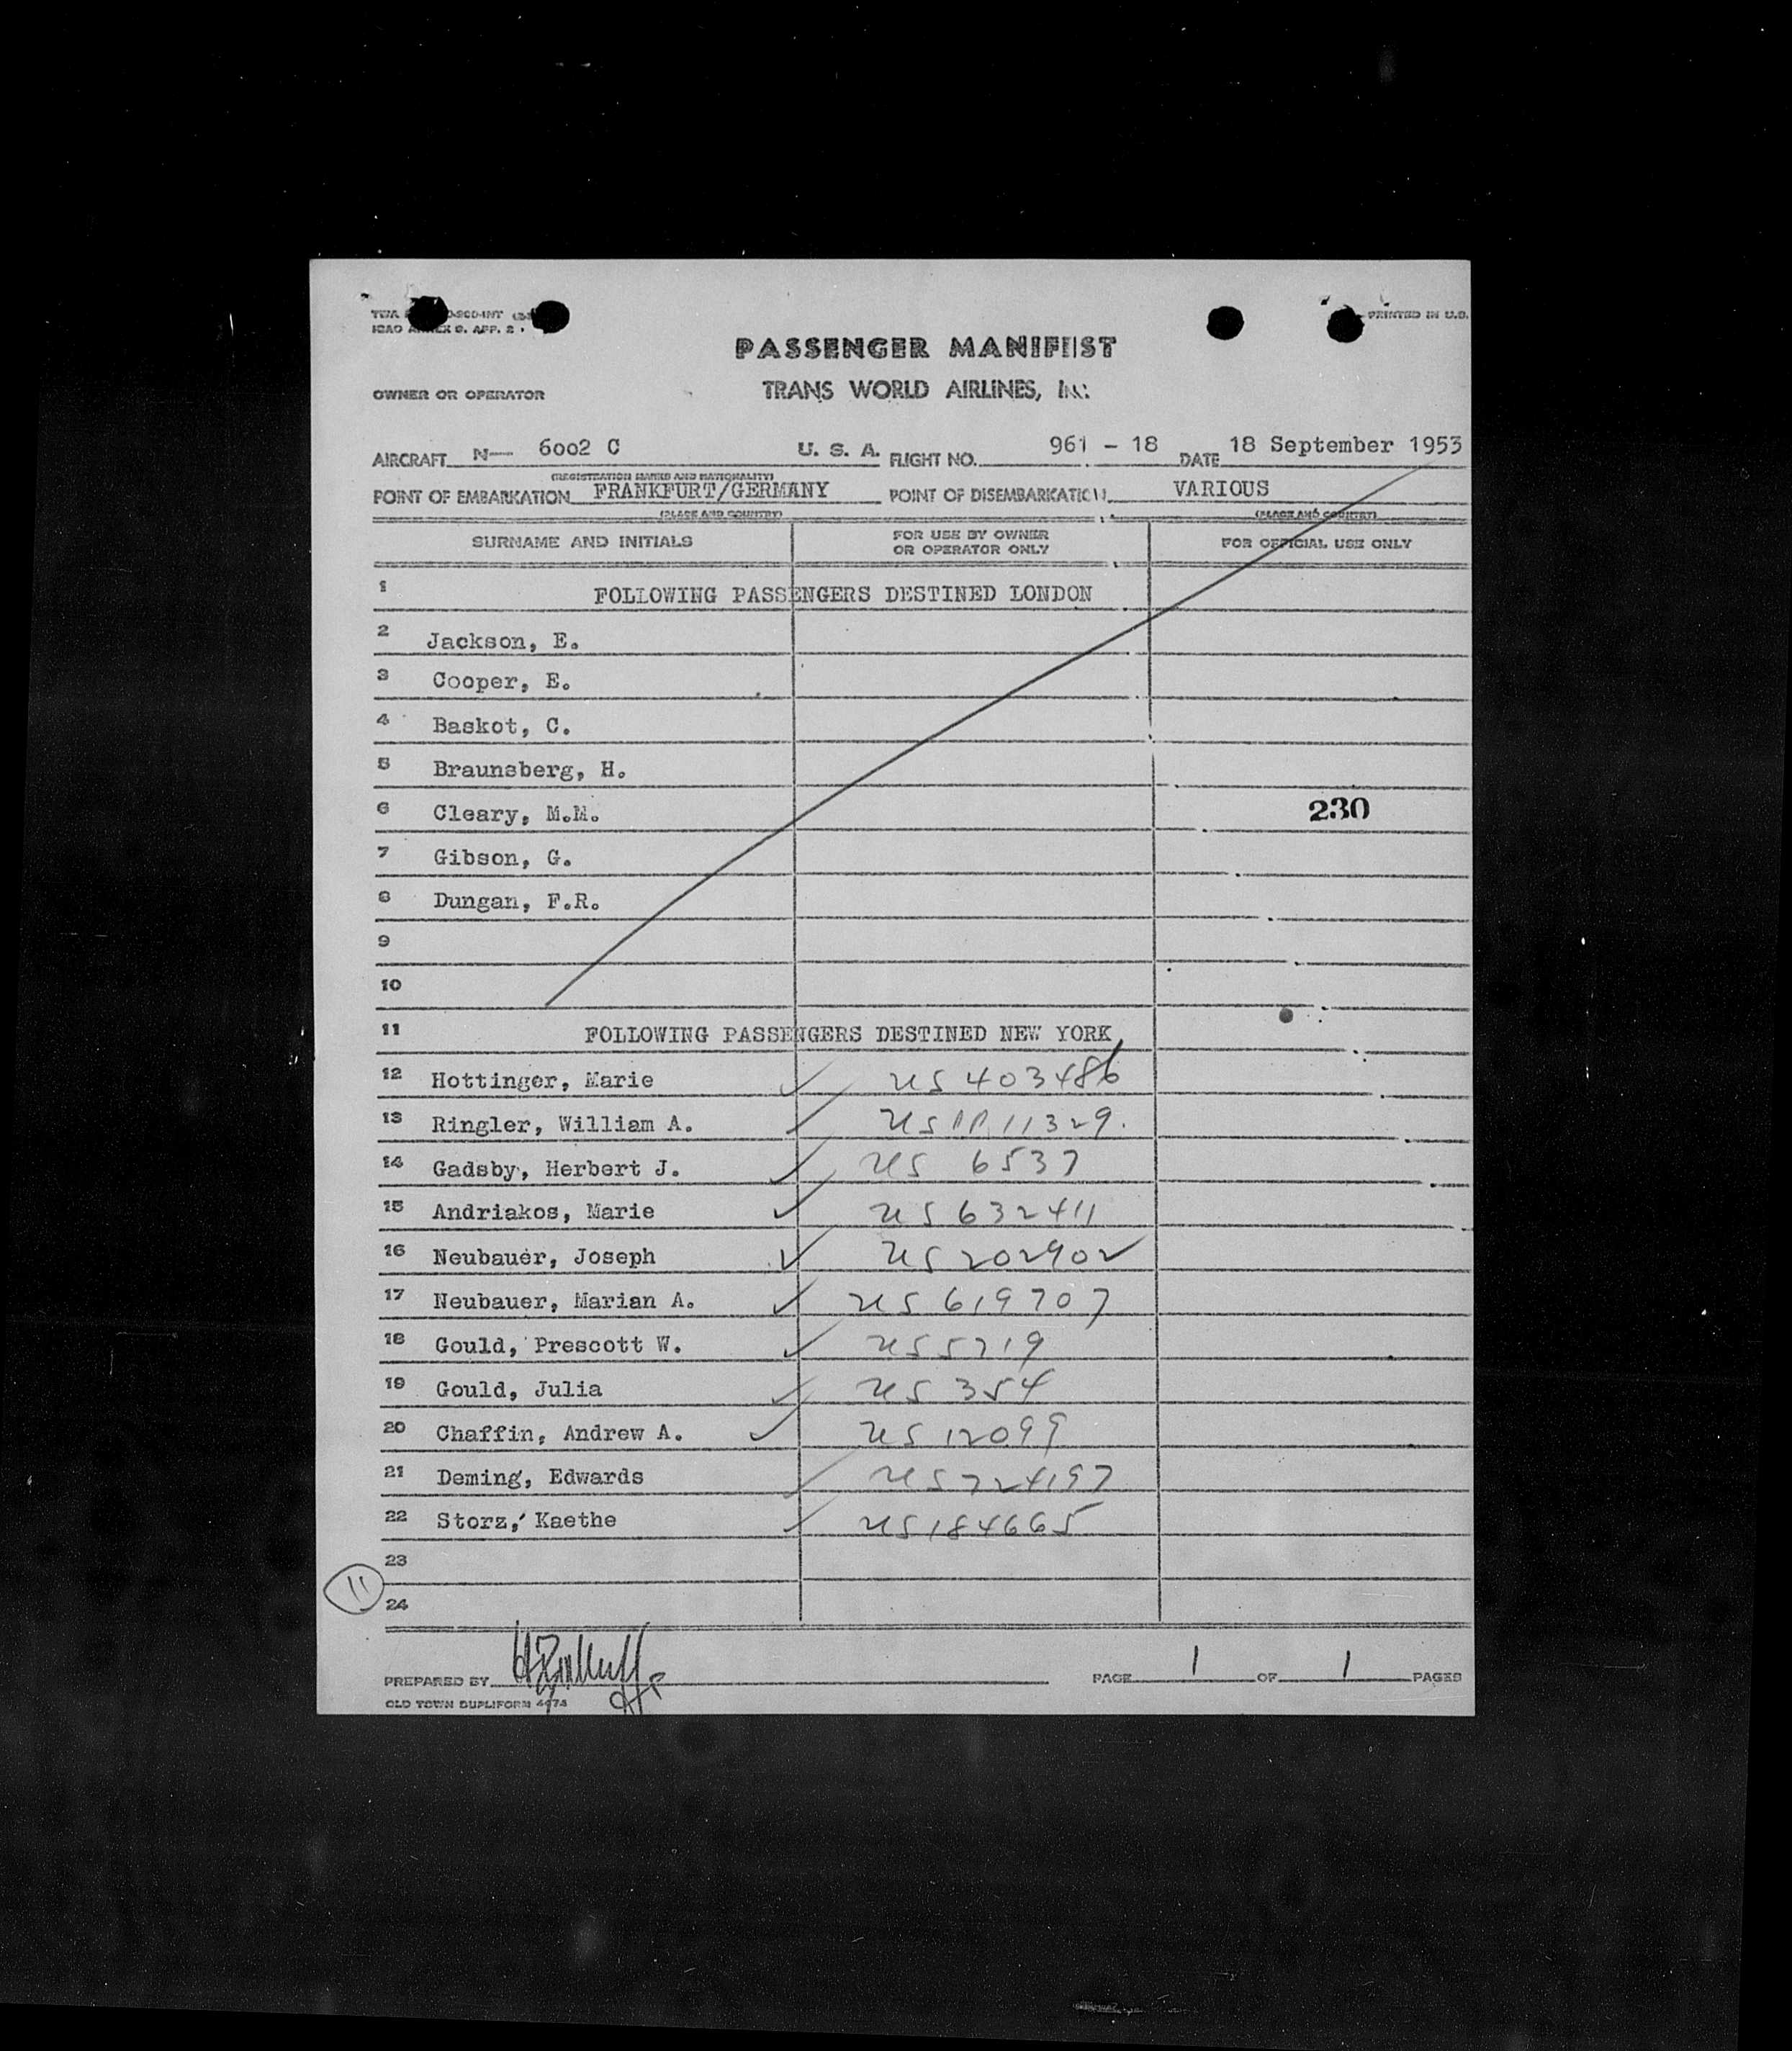 PRINTED IN U.S.
PASSENGER MANIFEST
OWNER OR OPERATOR TRANS WORLD AIRLINES, INC.
AIRCRAFT N— 6002 C U. S. A. FLIGHT NO. 961 - 18 DATE 18 September 1953
(REGISTRATION MARKS AND NATIONALITY)
POINT OF EMBARKATION FRANKFURT/GERMANY POINT OF DISEMBARKATION VARIOUS
(PLACE AND COUNTRY) (PLACE AND COUNTRY)
SURNAME AND INITIALS FOR USE BY OWNER OR OPERATOR ONLY FOR OFFICIAL USE ONLY
1 FOLLOWING PASSENGERS DESTINED LONDON
2 Jackson, E.
3 Cooper, E.
4 Baskot, C.
5 Braunsberg, H.
6 Cleary, M.M. 230
7 Gibson, G.
8 Dungan, F.R.
9
10
11 FOLLOWING PASSENGERS DESTINED NEW YORK
12 Hottinger, Marie ✓ US 403486
13 Ringler, William A. ✓ US PP 11329.
14 Gadsby, Herbert J. ✓ US 6537
15 Andriakos, Marie ✓ US 632411
16 Neubauer, Joseph ✓ US 202902
17 Neubauer, Marian A. ✓ US 619707
18 Gould, Prescott W. ✓ US 5719
19 Gould, Julia ✓ US 354
20 Chaffin, Andrew A. ✓ US 12099
21 Deming, Edwards ✓ US 724197
22 Storz, Kaethe ✓ US 184665
23
11
24
PREPARED BY PAGE 1 OF 1 PAGES
OLD TOWN DUPLIFORM 4474